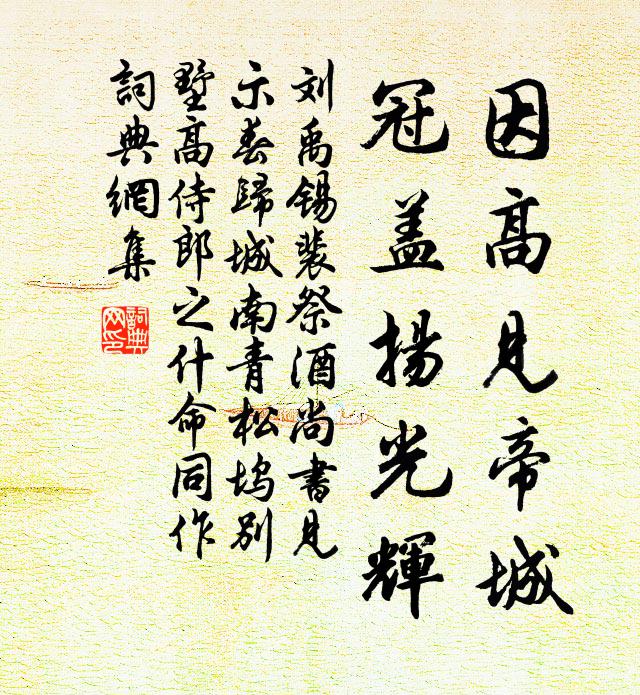 因高見帝城
冠盖揚光輝
刘禹锡裴祭酒尚書見
示春歸城南青松塢别
墅高侍郎之什命同作
詞典網集
詞典网印